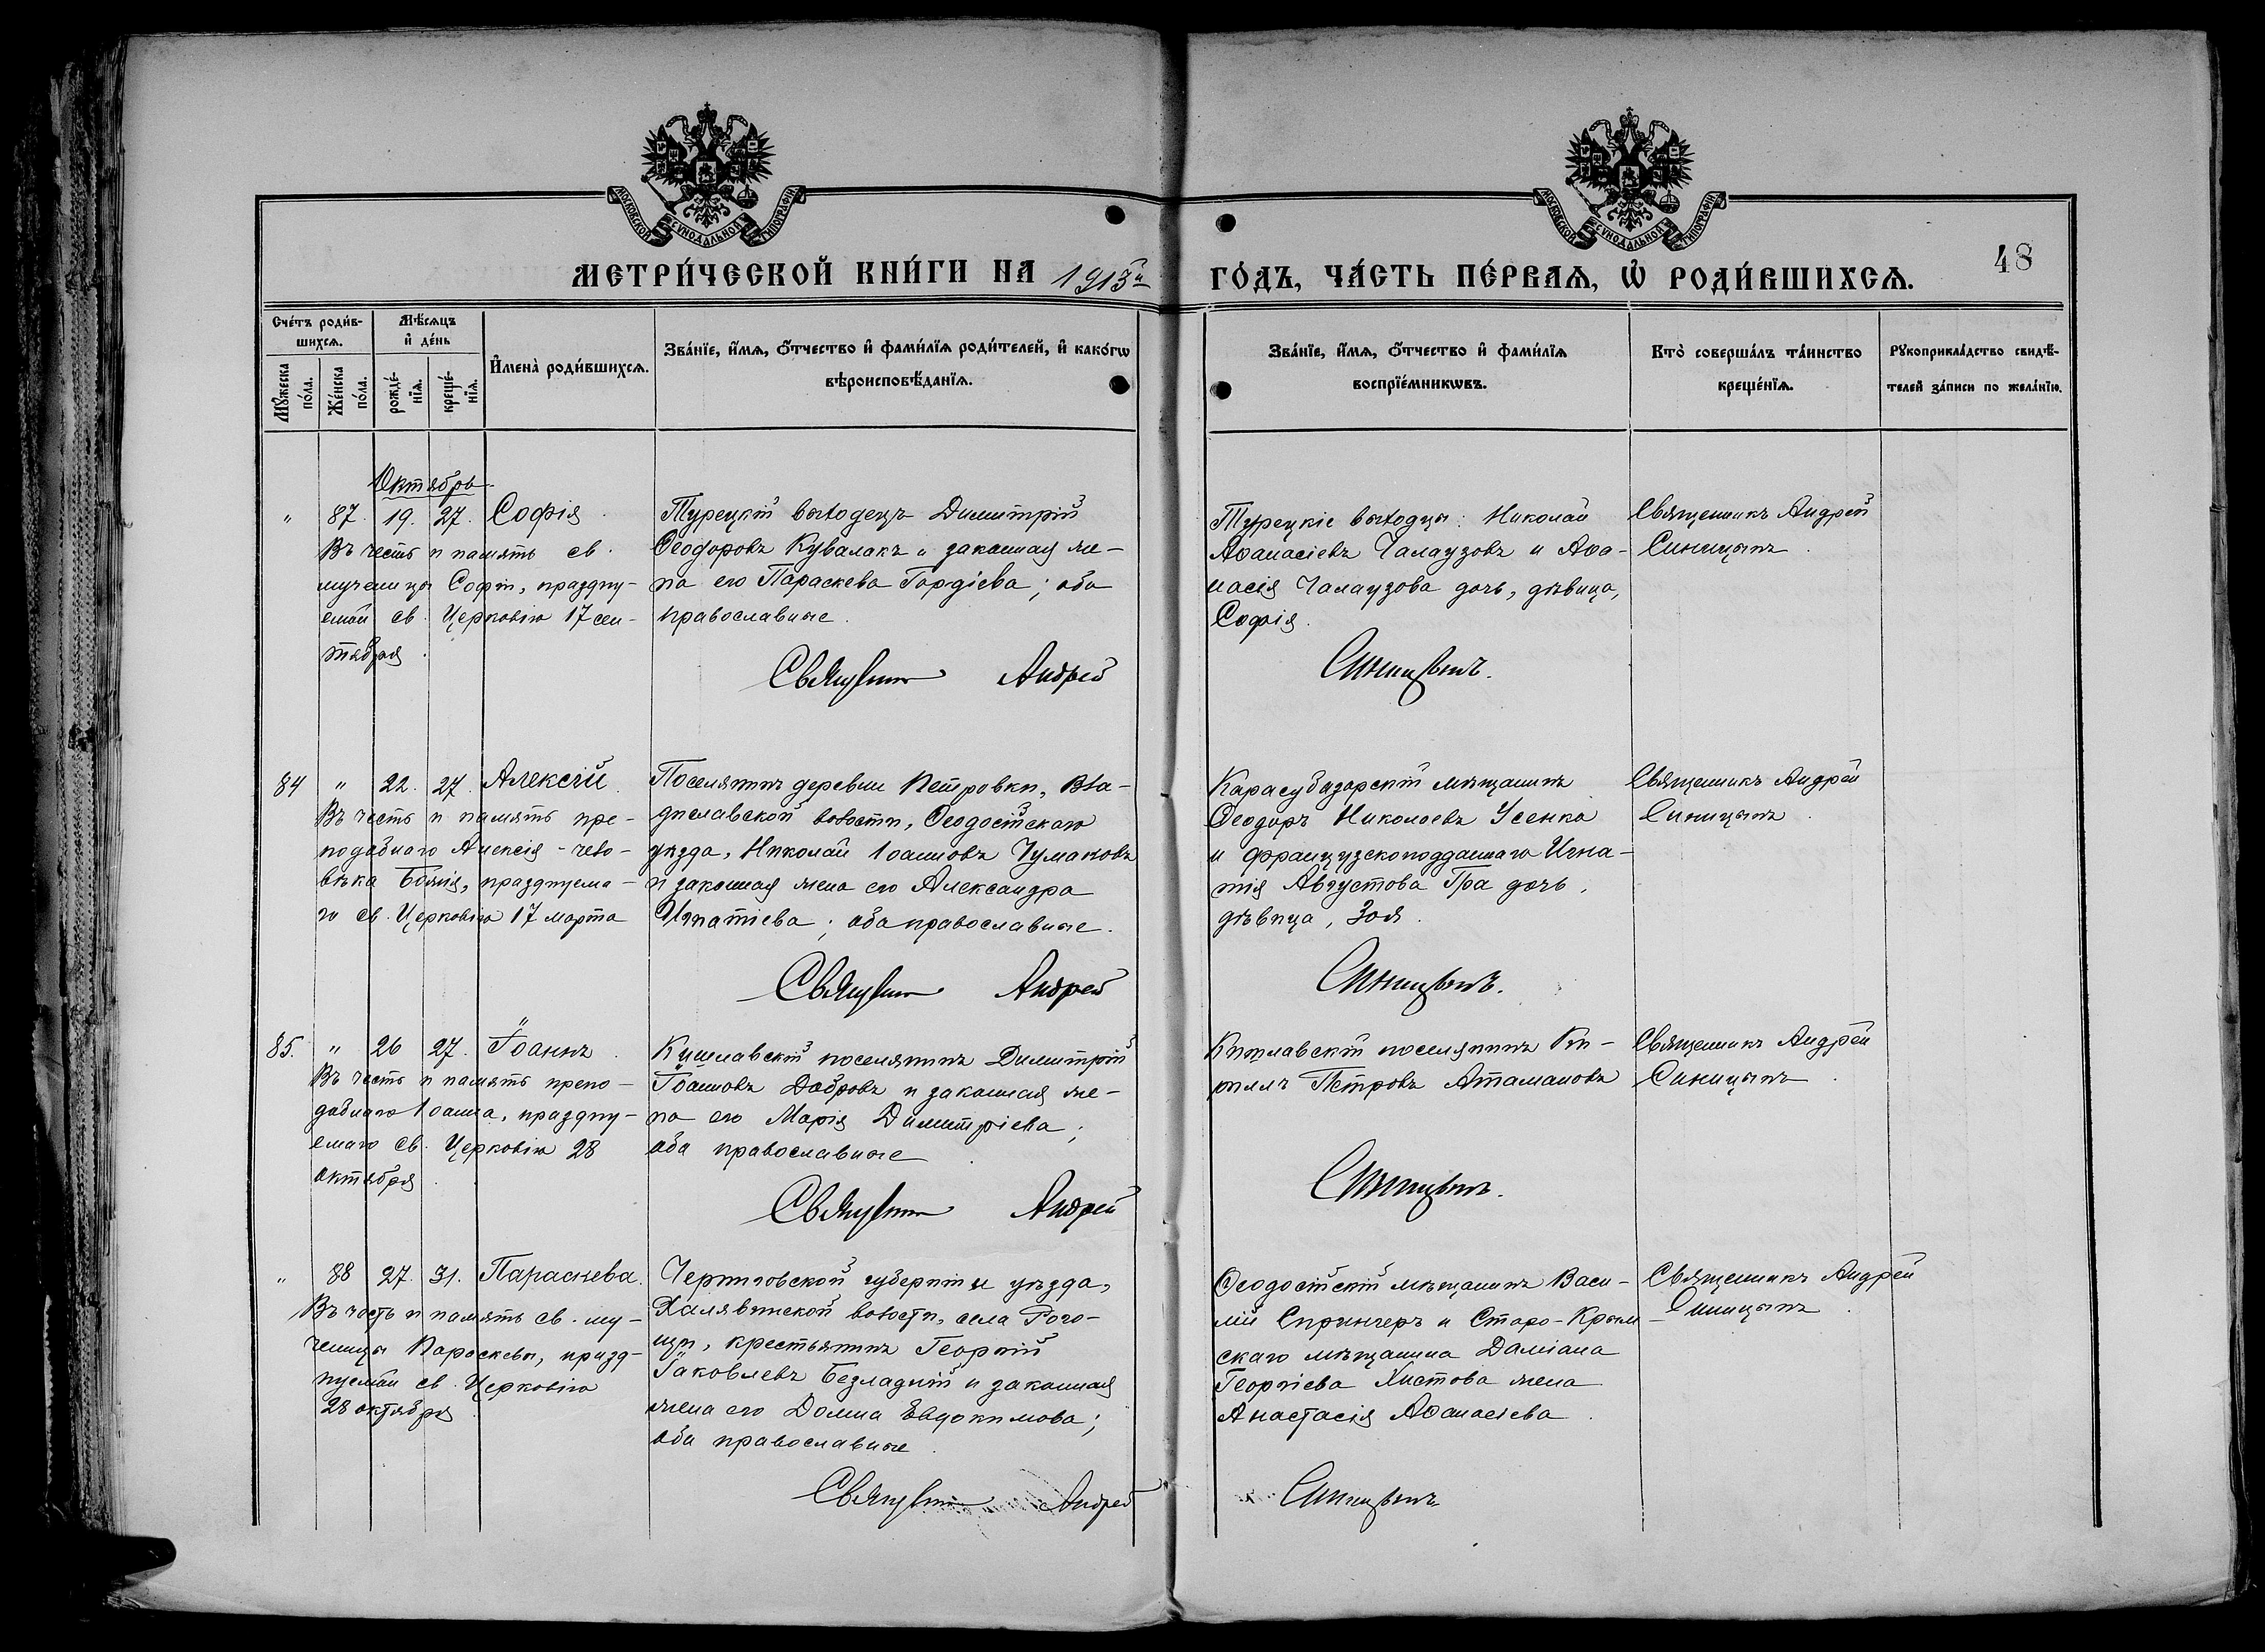 МОСКОВСКОЙ СѴНОДАЛЬНОЙ ТИПОГРАФІИ
МОСКОВСКОЙ СѴНОДАЛЬНОЙ ТИПОГРАФІИ
МЕТРИ́ЧЕСКОЙ КНИ́ГИ НА 1913й ГО́ДЪ, ЧА́СТЬ ПЕ́РВАѦ, Ѡ҆ РОДИ́ВШИХСѦ.
48
Сче́тъ роди́в-
шихсѧ.
Мѣ́сѧцъ
и҆ де́нь
Мꙋ́жеска
по́ла.
Же́нска
по́ла.
рожде́-
нїѧ.
креще́-
нїѧ.
И҆мена̀ роди́вшихсѧ.
Зва́нїе, и҆́мѧ, ѻ҆́тчество и҆ фами́лїѧ роди́телей, и҆ како́гѡ
вѣроисповѣ́данїѧ.
Зва́нїе, и҆́мѧ, ѻ҆́тчество и҆ фами́лїѧ
воспрїе́мникѡвъ.
Кто̀ соверша́лъ та́инство
креще́нїѧ.
Рꙋкоприкла́дство свидѣ́-
телей за́писи по жела́нїю.
Октябрь
" 87. 19. 27. Софія.
Въ честь и память св.
мученицы Софіи, праздну-
емой св. Церковію 17 сен-
тября.
Турецкій выходецъ Димитрій
Ѳеодоровъ Кувалакъ и законная же-
на его Параскева Гордіева; оба
православные.
Священникъ Андрей
Турецкіе выходцы: Николай
Аѳанасіевъ Чалаузовъ и Аѳа-
насія Чалаузова дочь, дѣвица,
Софія.
Синицынъ.
Священникъ Андрей
Синицынъ.
84 " 22. 27. Алексій.
Въ честь и память пре-
подобнаго Алексія - чело-
вѣка Божія, празднуема-
го св. Церковію 17 марта
Поселянинъ деревни Петровки, Вла-
диславской волости, Ѳеодосійскаго
уѣзда, Николай Іоанновъ Чумаковъ
и законная жена его Александра
Игнатіева; оба православные.
Священникъ Андрей
Карасубазарскій мѣщанинъ
Ѳеодоръ Николаевъ Усенко
и французскоподданнаго Игна-
тія Августова Гра дочь,
дѣвица, Зоя.
Синицынъ.
Священникъ Андрей
Синицынъ.
85. " 26 27. Іоаннъ.
Въ честь и память препо-
добнаго Іоанна, праздну-
емаго св. Церковію 28
октября.
Кишлавскій поселянинъ Димитрій
Іоанновъ Добровъ и законная же-
на его Марія Димитріева;
оба православные
Священникъ Андрей
Кишлавскій поселянинъ Ки-
риллъ Петровъ Атамановъ
Синицынъ.
Священникъ Андрей
Синицынъ.
" 88 27. 31. Параскева.
Въ честь и память св. му-
ченицы Параскевы, празд-
нуемой св. Церковію
28 октября.
Черниговской губерніи и уѣзда,
Халявинской волости, села Рого-
щи, крестьянинъ Георгій
Іаковлевъ Безладній и законная
жена его Домна Евдокимова;
оба православные.
Священникъ Андрей
Ѳеодосійскій мѣщанинъ Васи-
лій Спрингеръ и Старо-Крым-
скаго мѣщанина Даміана
Георгіева Христова жена
Анастасія Аѳанасіева.
Синицынъ
Священникъ Андрей
Синицынъ.